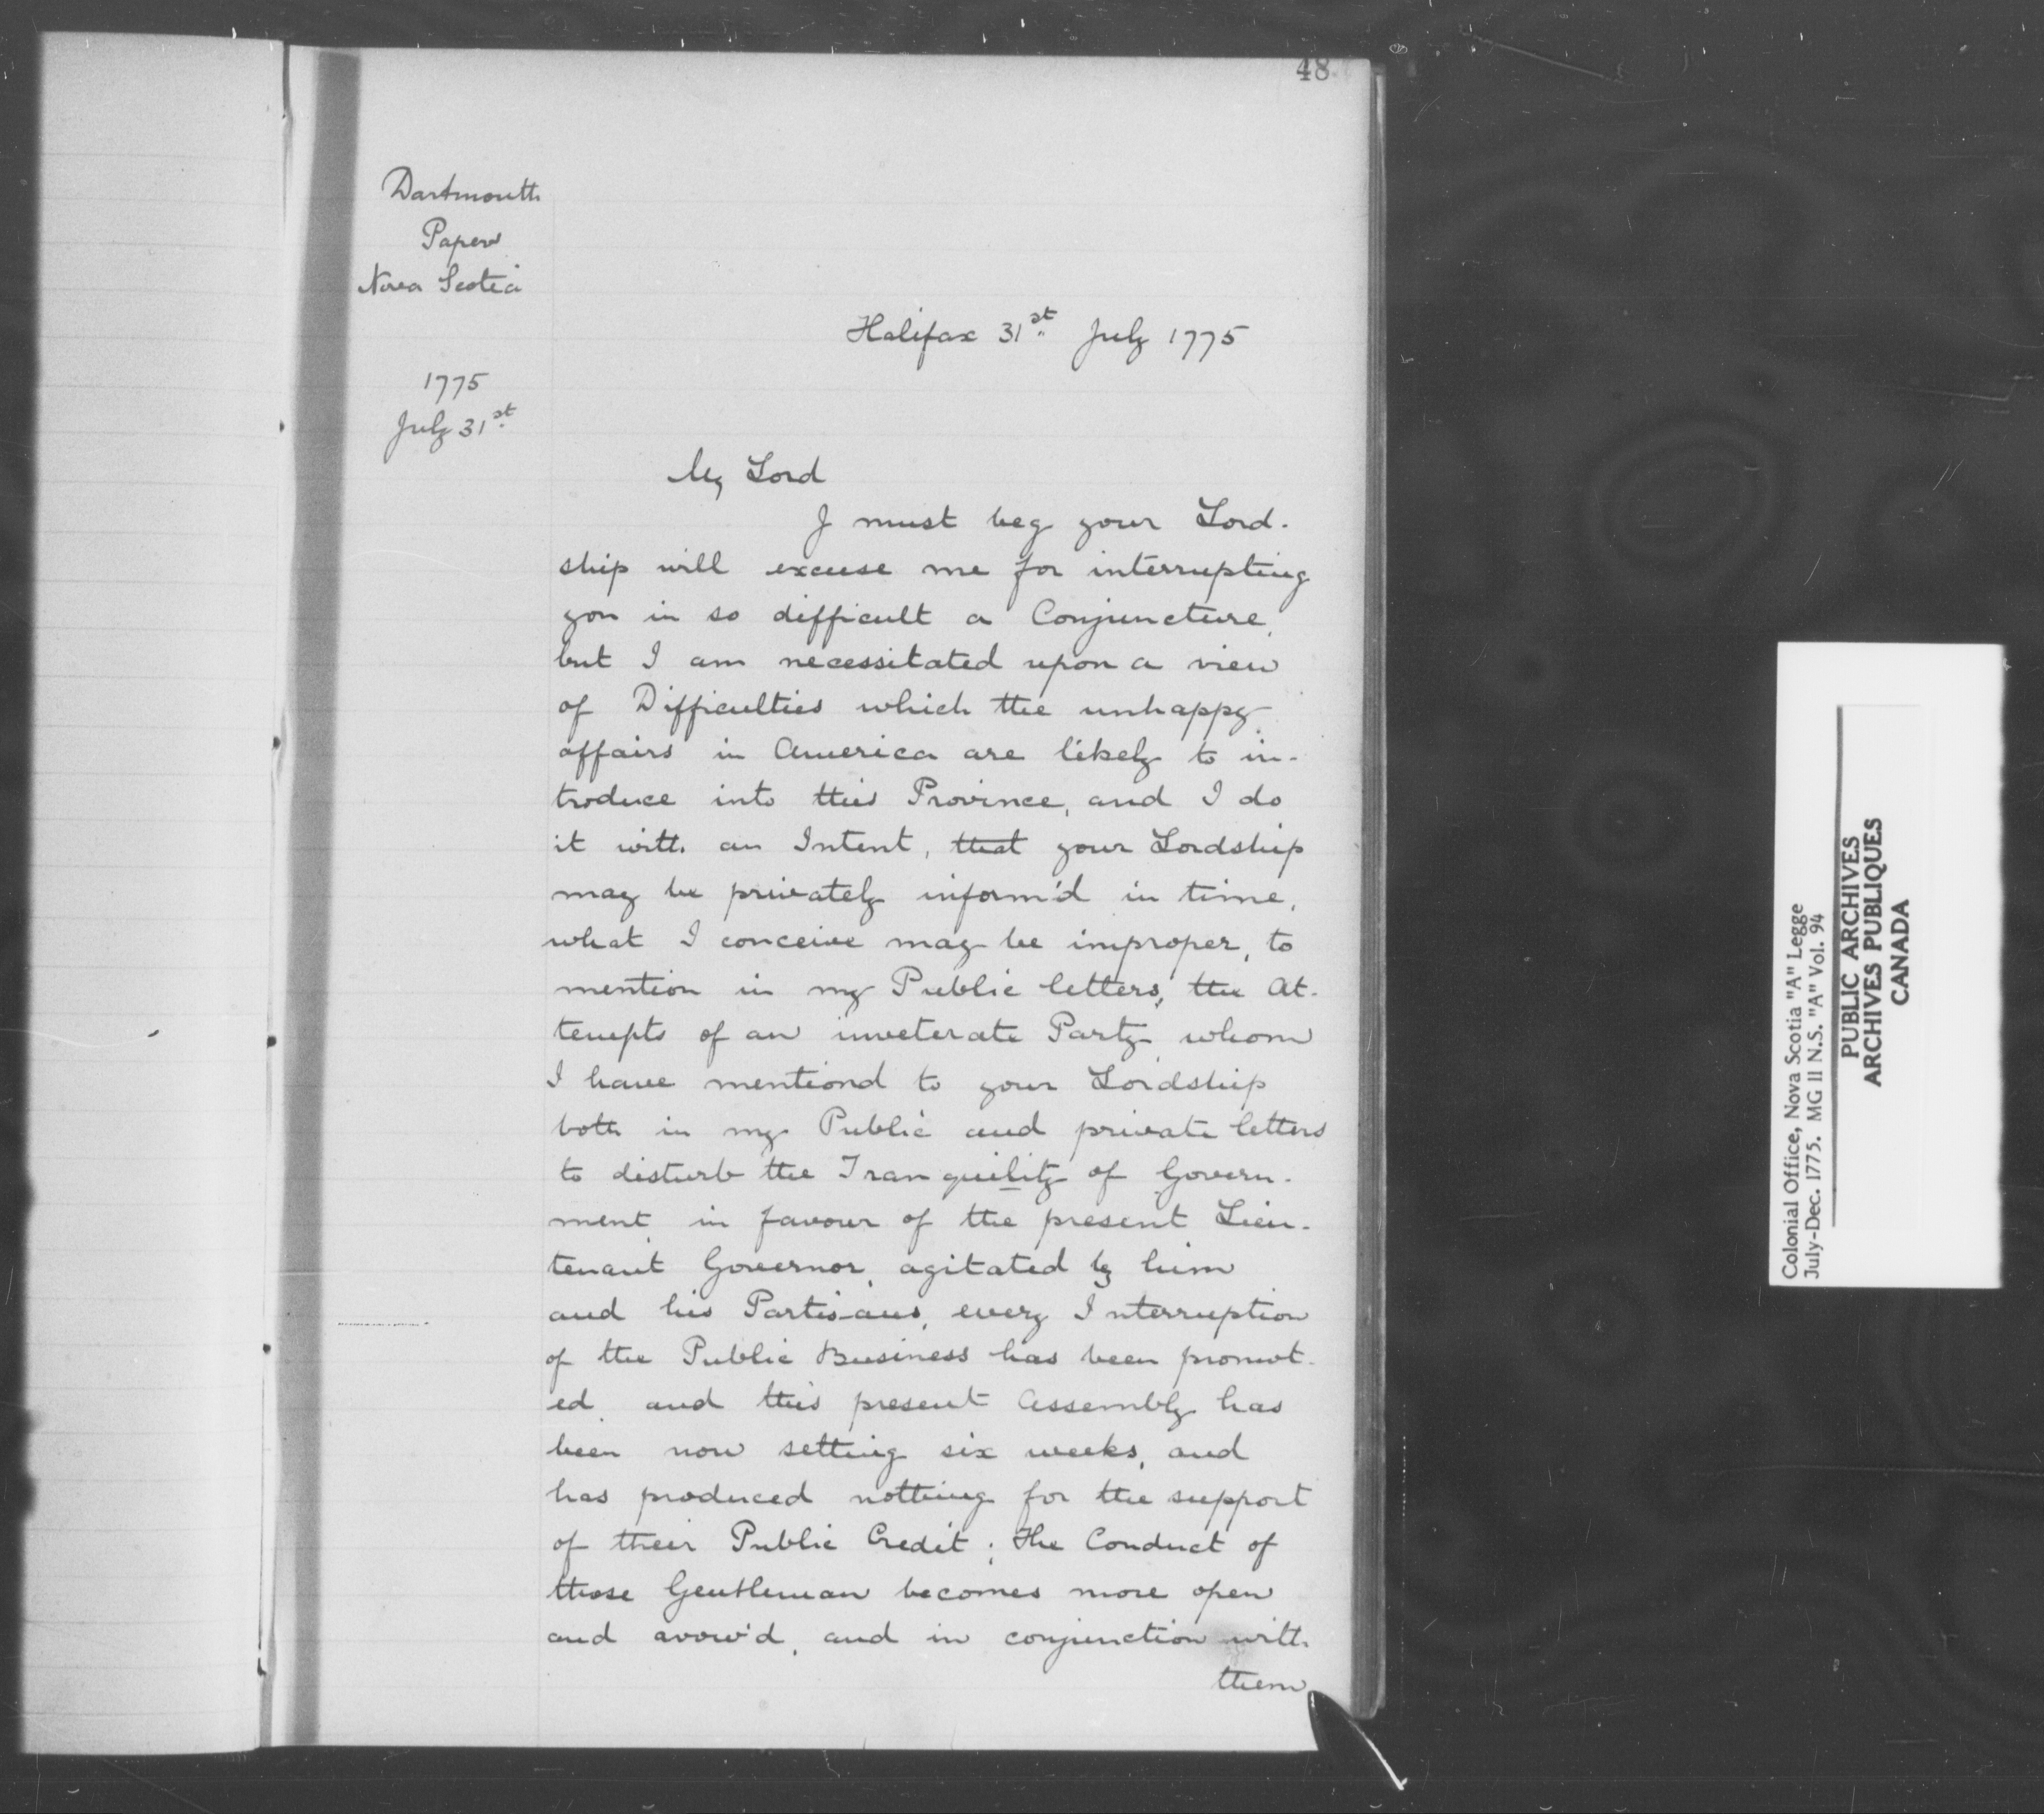 48
Dartmouth
Papers
Nova Scotia
1775
July 31st
Halifax 31st July 1775
My Lord
I must beg your Lord-
ship will excuse me for interrupting
you in so difficult a Conjuncture,
but I am necessitated upon a view
of Difficulties which the unhappy
affairs in America are likely to in-
troduce into this Province, and I do
it with an Intent, that your Lordship
may be privately inform'd in time,
what I conceive may be improper, to
mention in my Public letters, the At-
tempts of an inveterate Party, whom
I have mentiond to your Lordship
both in my Public and private letters
to disturb the Tranquility of Govern-
ment, in favour of the present Lieu-
tenant Governor, agitated by him
and his Partisans, every Interruption
of the Public Business has been promot-
ed, and this present Assembly has
been now setting six weeks, and
has produced nothing for the support
of their Public Credit; The Conduct of
those Gentleman becomes more open
and avow'd, and in conjunction with
them
Colonial Office, Nova Scotia "A" Legge
July-Dec. 1775. MG 11 N.S. "A" Vol. 94
PUBLIC ARCHIVES
ARCHIVES PUBLIQUES
CANADA